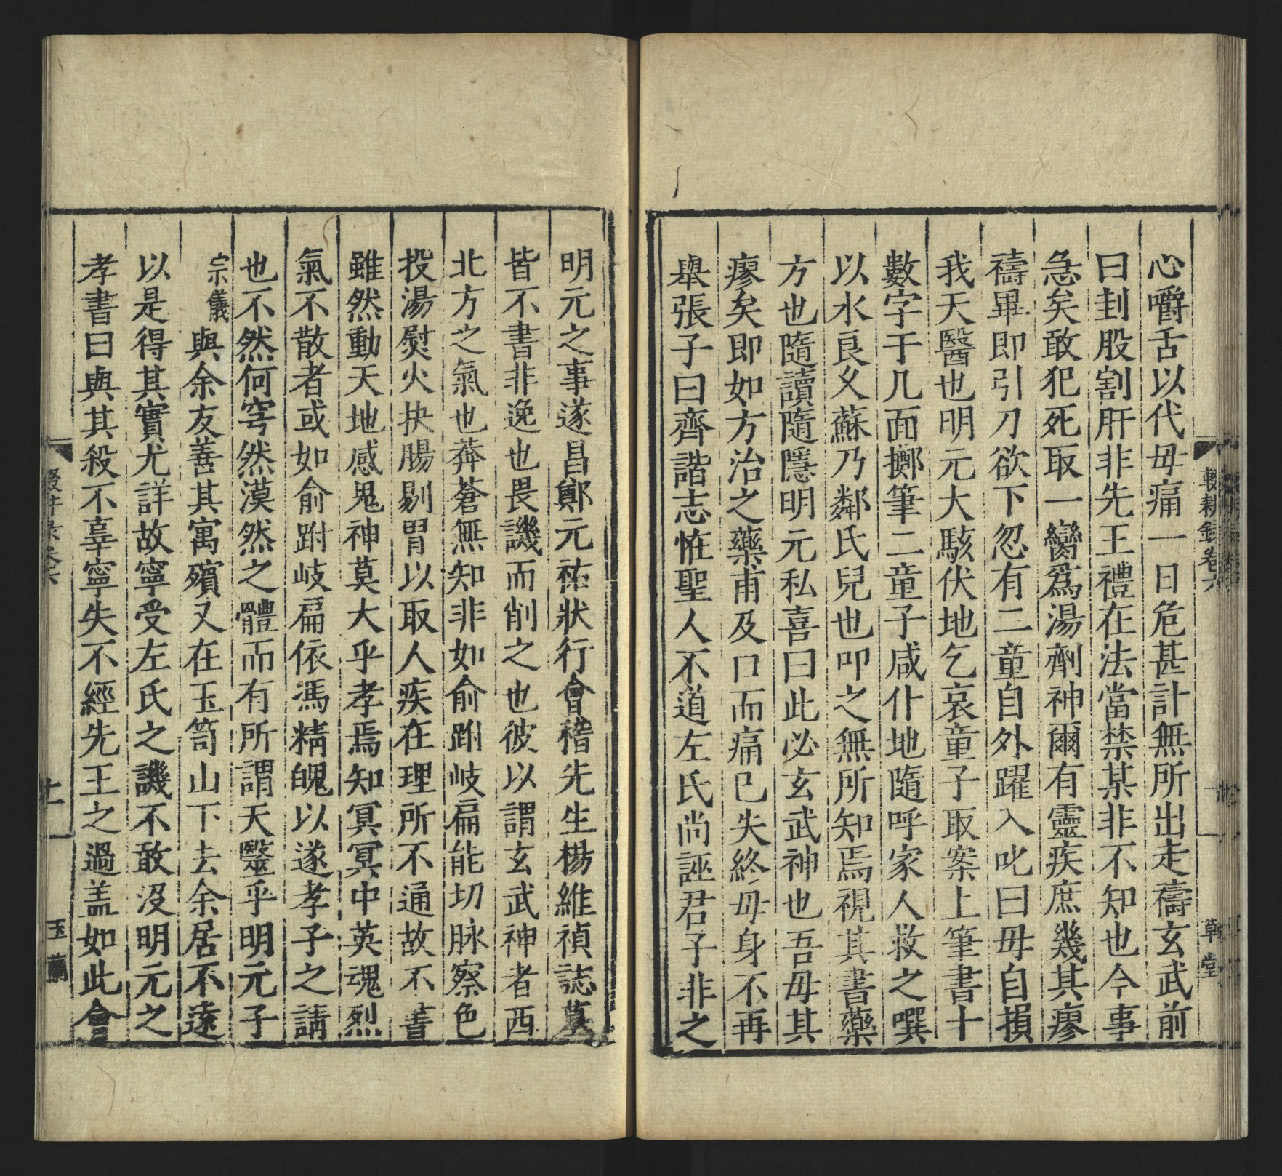 輟耕錄卷六
心嚼舌以代母痛一日危甚計無所出走禱玄武前
曰刲股割肝非先王禮在法當禁某非不知也今事
急矣敢犯死取一臠爲湯劑神爾有靈疾庶幾其瘳
禱畢即引刀欲下忽有二童自外躍入叱曰毋自損
我天醫也明元大駭伏地乞哀童子取案上筆書十
數字于几面擲筆二童子咸仆地隨呼家人救之噀
以水良乆蘇乃鄰氏兒也叩之無所知焉視其書藥
方也隨讀隨隱明元私喜曰此必玄武神也吾母其
瘳矣即如方治之藥甫及口而痛已失終母身不再
舉張子曰齊諧志恠聖人不道左氏尚誣君子非之
明元之事遂昌鄭元祐狀行會稽先生楊維禎誌墓
皆不書非逸也畏譏而削之也彼以謂玄武神者西
北方之氣也莽蒼無知非如俞跗岐扁能切脉察色
投湯熨火抉腸剔胃以取人疾在理所不通故不書
雖然動天地感鬼神莫大乎孝焉知冥冥中英魂烈
氣不散者或如俞跗岐扁依馮精魄以遂孝子之請
也不然何窅然漠然之體而有所謂天毉乎明元子
宗儀與余友善其寓殯又在玉笥山下去余居不遠
以是得其實尤詳故寧受左氏之譏不敢沒明元之
孝書曰與其殺不辜寧失不經先王之過盖如此會
十一
玉蘭